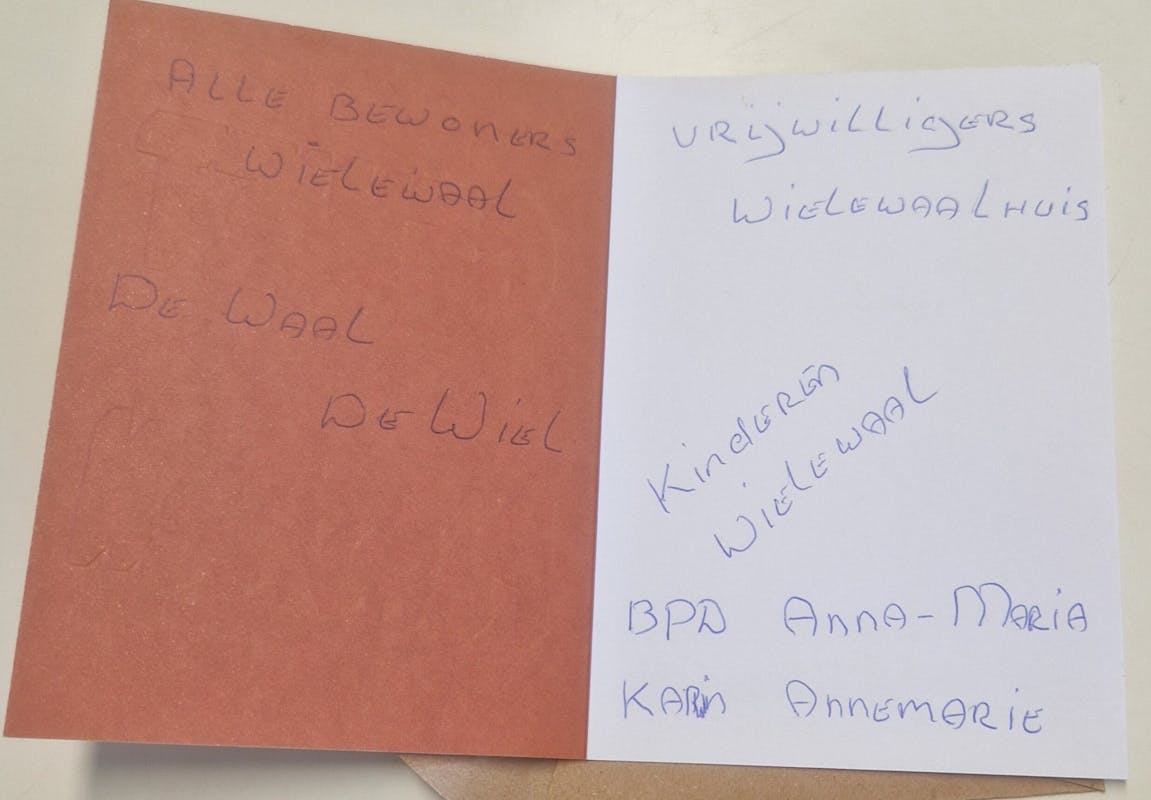 ALLE BEWONERS
WIELEWAAL
DE WAAL
DE WIEL
VRIJWILLIGERS
WIELEWAALHUIS
KINDEREN
WIELEWAAL
BPD ANNA-MARIA
KARIN ANNEMARIE